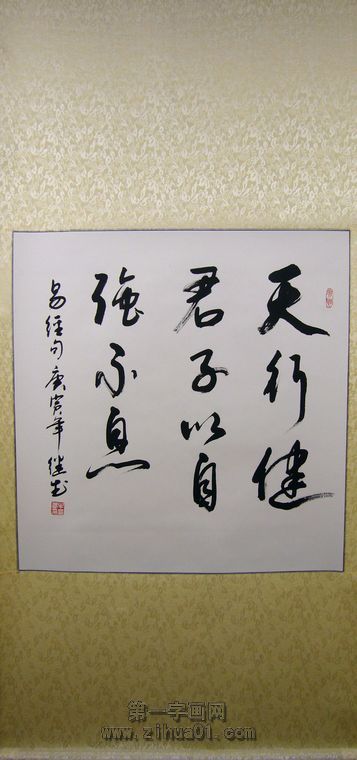 天行健
君子以自
強不息
易經句 庚寅年 继书
第一字画网
www.zihua01.com